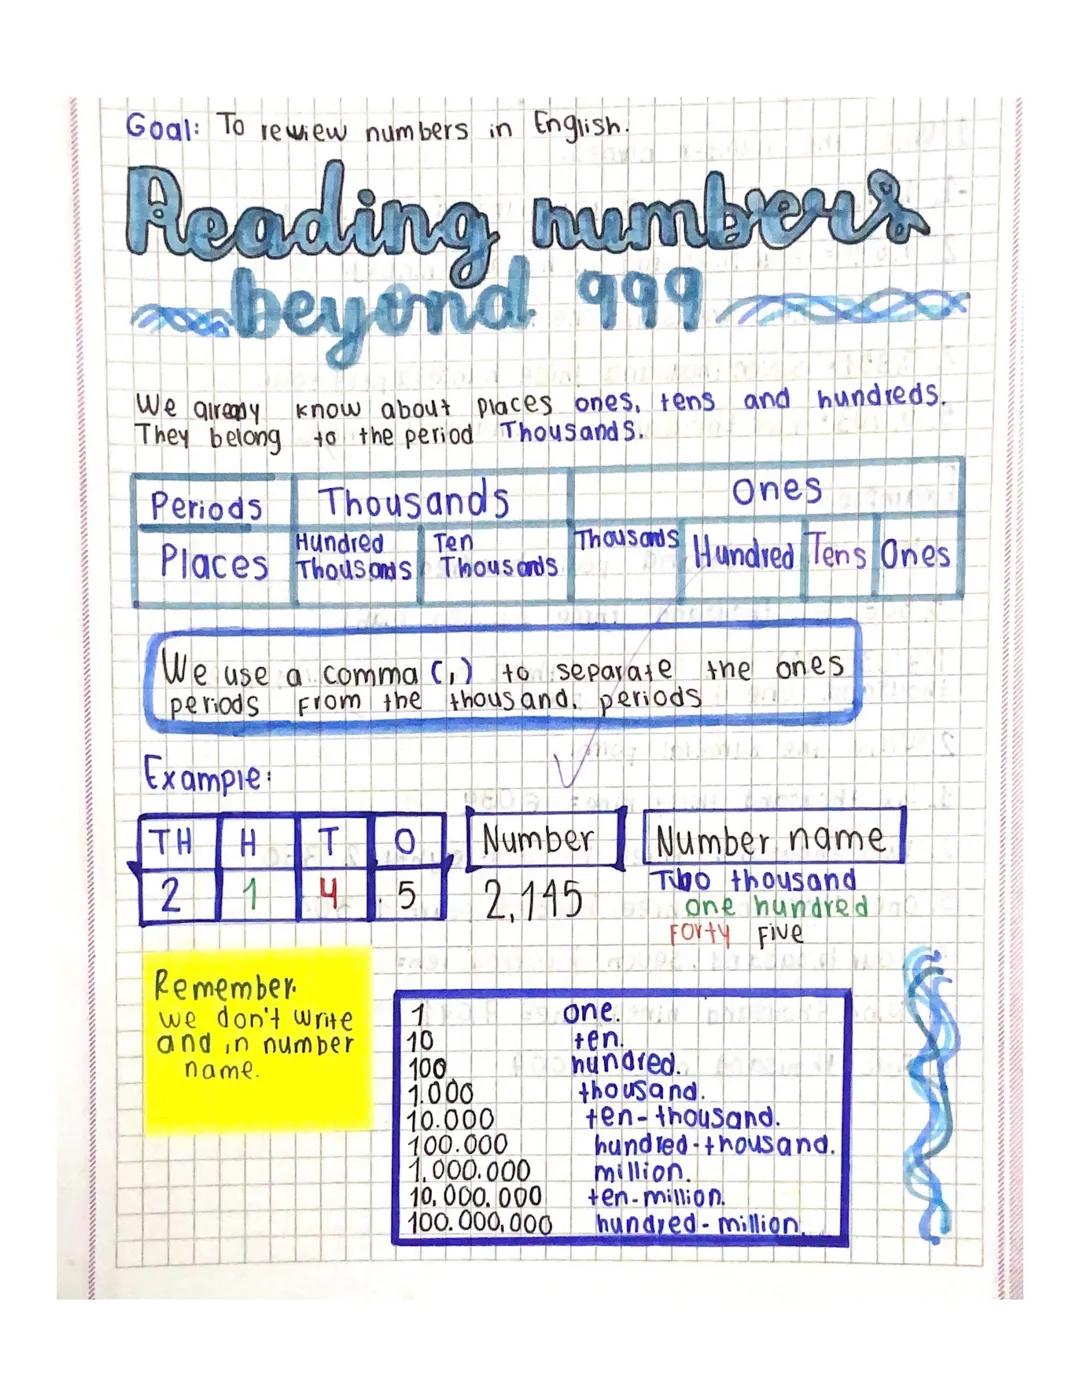 Goal: To review numbers in English.
Reading numbers
beyond 999
We already know about places ones, tens and hundreds.
They belong to the period Thousands.
Periods Thousands Ones
Places Hundred Thousands Ten Thousands Thousands Hundred Tens Ones
We use a comma (,) to separate the ones
periods from the thousand. periods
Example:
TH H T O Number Number name
2 1 4 5 2,145 Two thousand
one hundred
forty five
Remember.
we don't write
and in number
name.
1 one.
10 ten.
100 hundred.
1.000 thousand.
10.000 ten-thousand.
100.000 hundred-thousand.
1.000.000 million.
10.000.000 ten-million.
100.000.000 hundred-million.